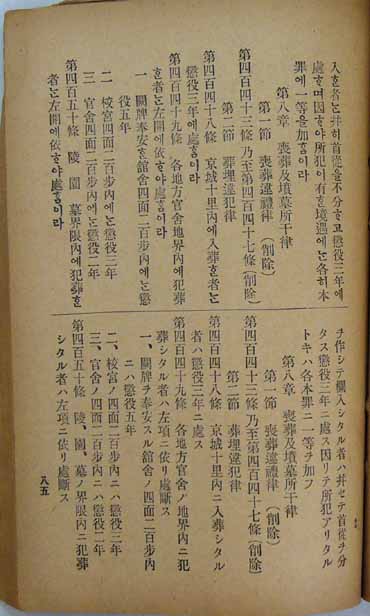 入ᄒᆞᆫ者ᄂᆞᆫ幷히首從을不分ᄒᆞ고懲役三年에
處ᄒᆞ며因ᄒᆞ야所犯이有ᄒᆞᆫ境遇에ᄂᆞᆫ各히本
罪에一等을加홈이라
第八章 喪葬及墳墓所干律
第一節 喪葬違禮律 (削除)
第四百四十三條 乃至第四百四十七條 (削除)
第二節 葬埋違犯律
第四百四十八條 京城十里內에入葬ᄒᆞᆫ者ᄂᆞᆫ
懲役三年에處홈이라
第四百四十九條 各地方官舍地界內에犯葬
ᄒᆞᆫ者ᄂᆞᆫ左開에依ᄒᆞ야處홈이라
一 闕牌奉安ᄒᆞᆫ舘舍四面二百步內에ᄂᆞᆫ懲
役五年
二 校宮四面二百步內에ᄂᆞᆫ懲役三年
三 官舍四面二百步內에ᄂᆞᆫ懲役二年
第四百五十條 陵 園 墓界限內에犯葬ᄒᆞᆫ
者ᄂᆞᆫ左開에依ᄒᆞ야處홈이라
ヲ作シテ闌入シタル者ハ幷セテ首從ヲ分
タス懲役三年ニ處ス因リテ所犯アリタル
トキハ各本罪ニ一等ヲ加フ
第八章 喪葬及墳墓所干律
第一節 喪葬違禮律 (削除)
第四百四十三條乃至第四百四十七條(削除)
第二節 葬埋違犯律
第四百四十八條 京城十里內ニ入葬シタル
者ハ懲役三年ニ處ス
第四百四十九條 各地方官舍ノ地界內ニ犯
葬シタル者ハ左項ニ依リ處斷ス
一、闕牌ヲ奉安スル舘舍ノ四面二百步內
ニハ懲役五年
二、校宮ノ四面二百步內ニハ懲役三年
三、官舍ノ四面二百步內ニハ懲役二年
第四百五十條 陵、園、墓ノ界限內ニ犯葬
シタル者ハ左項ニ依リ處斷ス
八五